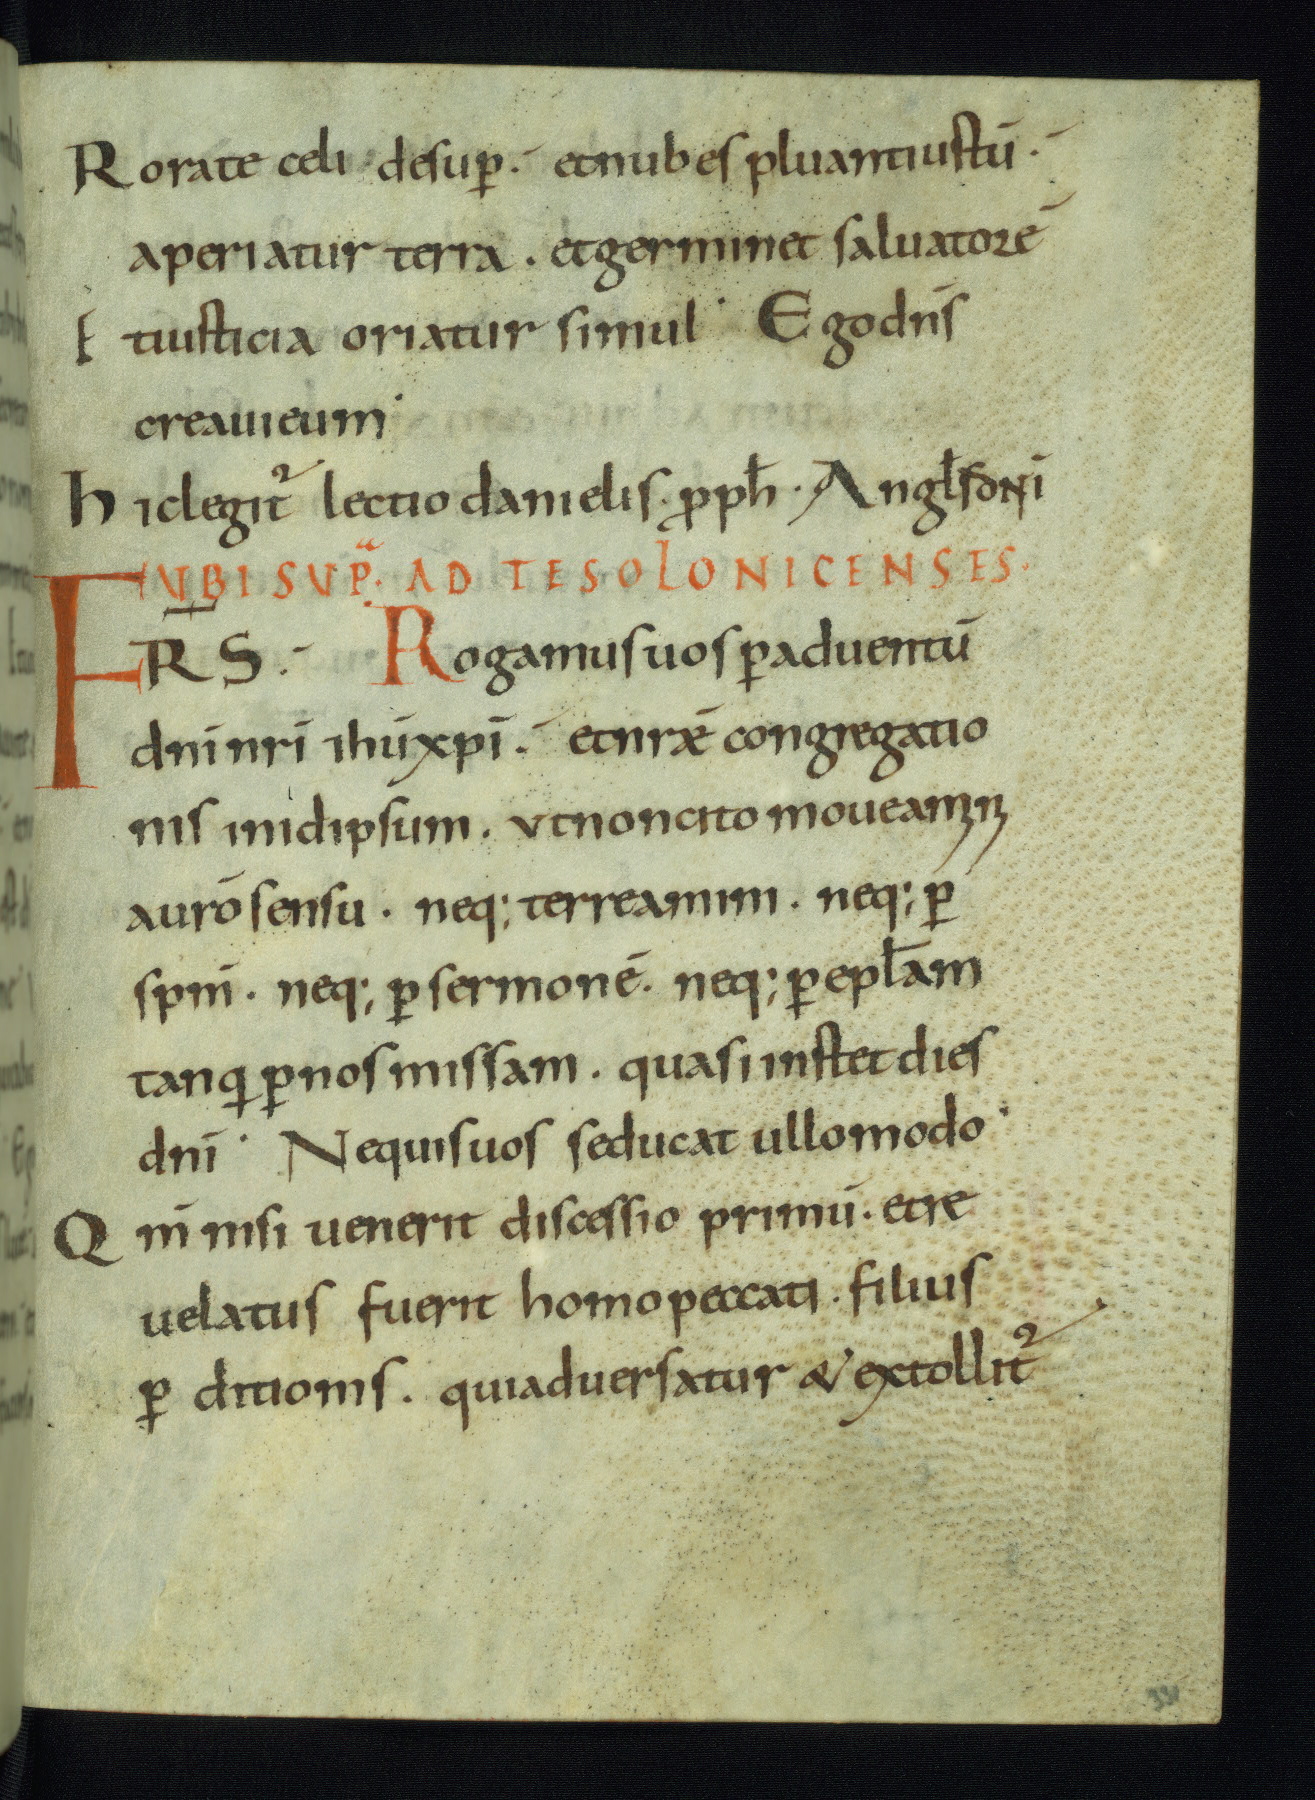 Rorate celi desup̄. et nubes pluant iustū.
aperiatur terra. et germinet saluatorē
Et iusticia oriatur simul. Ego dn̄s
creaui eum.
hic legit̄ lectio danielis. ꝓph̄. Angl̄s dn̄i
UBI SUP̄. AD TESOLONICENSES.
FRS. Rogamus uos ꝑ aduentū
dn̄i nr̄i ihū xp̄i. et nr̄æ congregatio
nis in id ipsum. ut non cito moueamini
a ur̄o sensu. neq; terreamini. neq; ꝑ
sp̄m. neq; ꝑ sermonē. neq; ꝑ ep̄lam
tanqꝫ ꝑ nos missam. quasi instet dies
dn̄i. Nequis uos seducat ullo modo.
Qm̄ nisi uenerit discessio primū. et re
uelatus fuerit homo peccati. filius
ꝑditionis. qui aduersatur & extollit̄